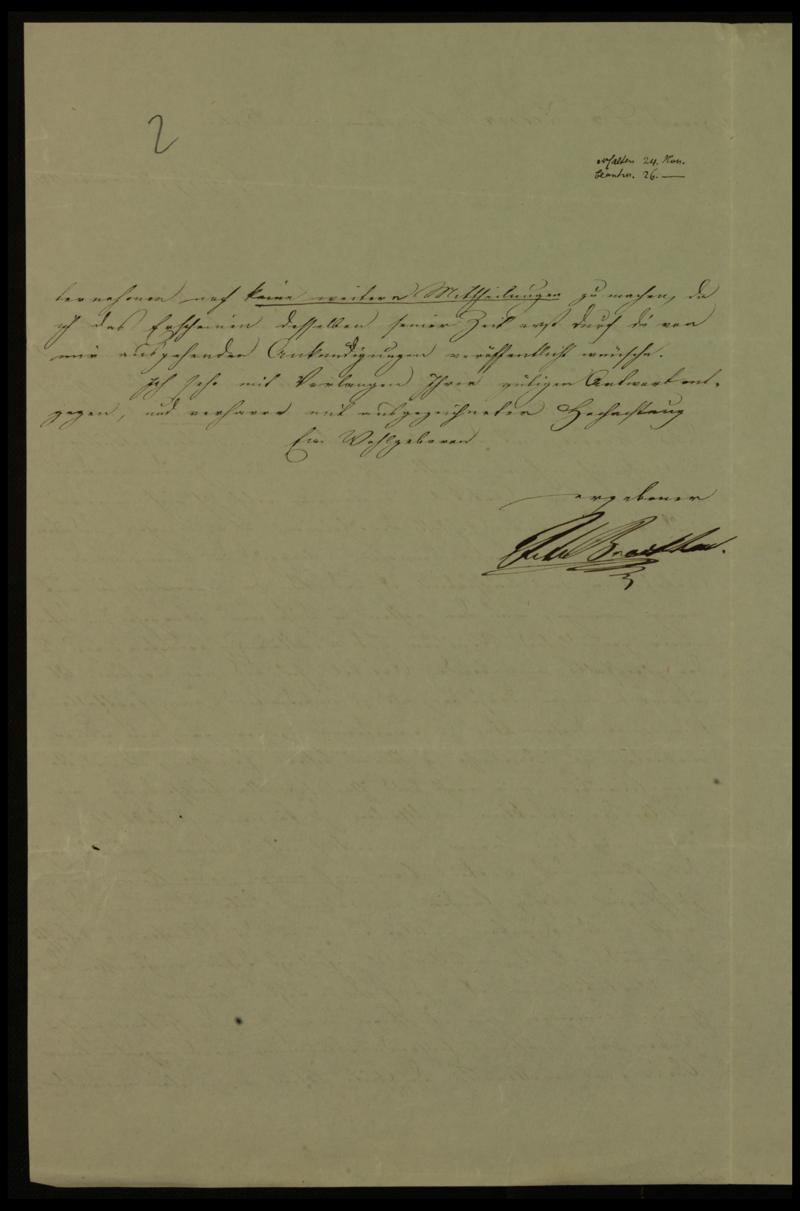 2
erhalten 24. Nov.
beantw. 26. —
ternehmen noch keine weitere Mittheilungen zu machen, da
ich das Erscheinen desselben seiner Zeit erst durch die von
mir ausgehenden Ankündigungen veröffentlicht wünsche.
Ich sehe mit Verlangen Ihrer gütigen Antwort ent-
gegen, und verharre mit ausgezeichneter Hochachtung
Ew. Wohlgeboren
ergebener